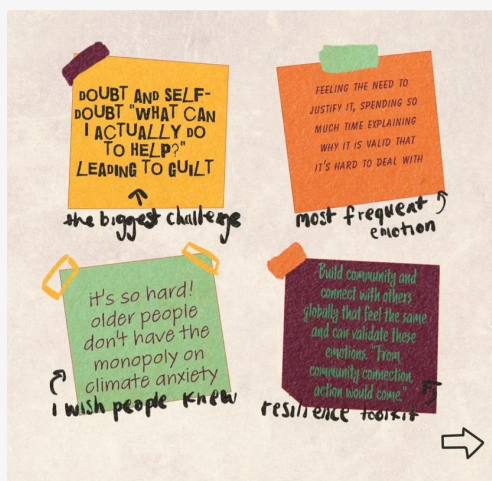 DOUBT AND SELF-
DOUBT "WHAT CAN
I ACTUALLY DO
TO HELP?"
LEADING TO GUILT
the biggest challenge
FEELING THE NEED TO
JUSTIFY IT, SPENDING SO
MUCH TIME EXPLAINING
WHY IT IS VALID THAT
IT'S HARD TO DEAL WITH
most frequent
emotion
it's so hard!
older people
don't have the
monopoly on
climate anxiety
I wish people knew
Build community and
connect with others
globally that feel the same
and can validate these
emotions. "From
community connection,
action would come."
resilience toolkit